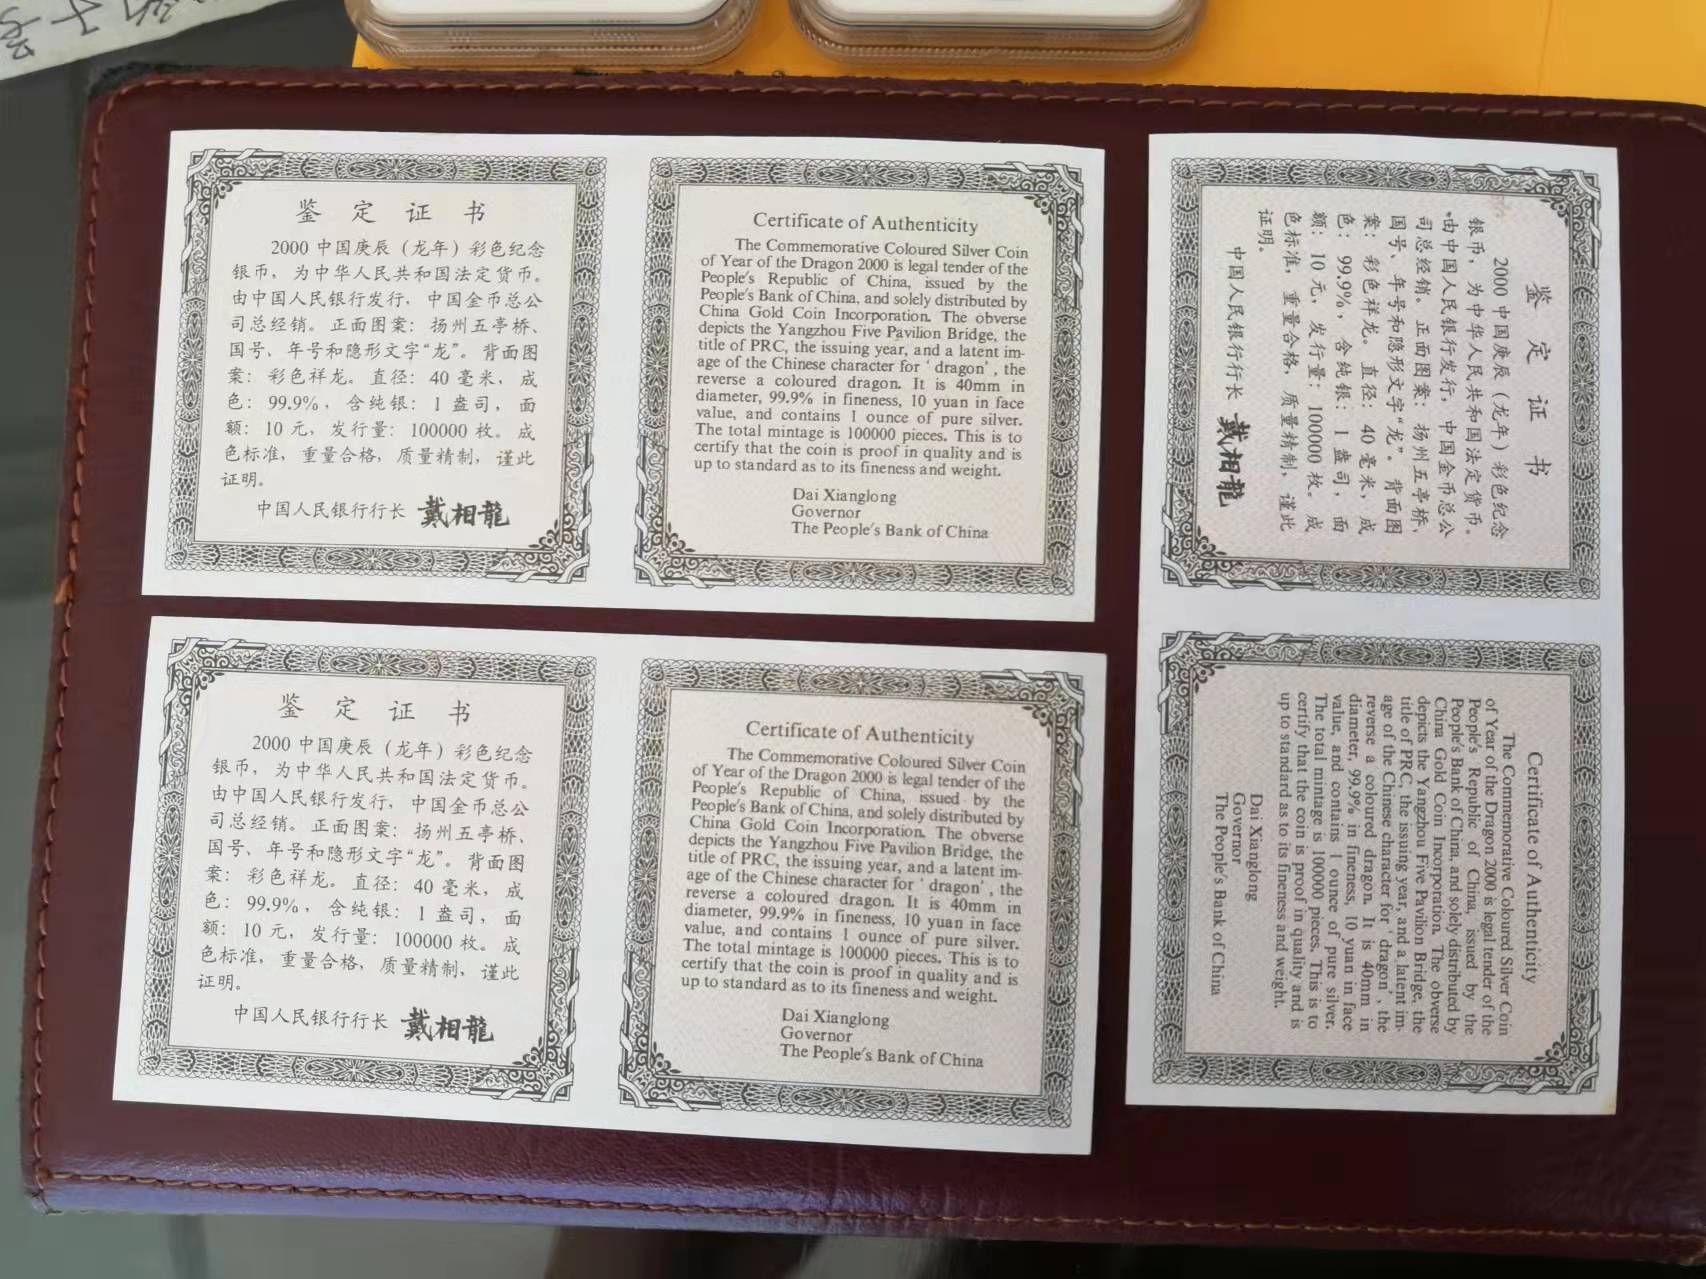 鉴定证书
2000 中国庚辰（龙年）彩色纪念
银币，为中华人民共和国法定货币。
由中国人民银行发行，中国金币总公
司总经销。正面图案：扬州五亭桥、
国号、年号和隐形文字“龙”。背面图
案：彩色祥龙。直径：40 毫米，成
色：99.9%，含纯银：1 盎司，面
额：10 元，发行量：100000 枚。成
色标准，重量合格，质量精制，谨此
证明。
中国人民银行行长 戴相龍
Certificate of Authenticity
The Commemorative Coloured Silver Coin
of Year of the Dragon 2000 is legal tender of the
People's Republic of China, issued by the
People's Bank of China, and solely distributed by
China Gold Coin Incorporation. The obverse
depicts the Yangzhou Five Pavilion Bridge, the
title of PRC, the issuing year, and a latent im-
age of the Chinese character for ‘dragon’, the
reverse a coloured dragon. It is 40mm in
diameter, 99.9% in fineness, 10 yuan in face
value, and contains 1 ounce of pure silver.
The total mintage is 100000 pieces. This is to
certify that the coin is proof in quality and is
up to standard as to its fineness and weight.
Dai Xianglong
Governor
The People's Bank of China
鉴定证书
2000 中国庚辰（龙年）彩色纪念
银币，为中华人民共和国法定货币。
由中国人民银行发行，中国金币总公
司总经销。正面图案：扬州五亭桥、
国号、年号和隐形文字“龙”。背面图
案：彩色祥龙。直径：40 毫米，成
色：99.9%，含纯银：1 盎司，面
额：10 元，发行量：100000 枚。成
色标准，重量合格，质量精制，谨此
证明。
中国人民银行行长 戴相龍
Certificate of Authenticity
The Commemorative Coloured Silver Coin
of Year of the Dragon 2000 is legal tender of the
People's Republic of China, issued by the
People's Bank of China, and solely distributed by
China Gold Coin Incorporation. The obverse
depicts the Yangzhou Five Pavilion Bridge, the
title of PRC, the issuing year, and a latent im-
age of the Chinese character for ‘dragon’, the
reverse a coloured dragon. It is 40mm in
diameter, 99.9% in fineness, 10 yuan in face
value, and contains 1 ounce of pure silver.
The total mintage is 100000 pieces. This is to
certify that the coin is proof in quality and is
up to standard as to its fineness and weight.
Dai Xianglong
Governor
The People's Bank of China
鉴定证书
2000 中国庚辰（龙年）彩色纪念
银币，为中华人民共和国法定货币。
由中国人民银行发行，中国金币总公
司总经销。正面图案：扬州五亭桥、
国号、年号和隐形文字“龙”。背面图
案：彩色祥龙。直径：40 毫米，成
色：99.9%，含纯银：1 盎司，面
额：10 元，发行量：100000 枚。成
色标准，重量合格，质量精制，谨此
证明。
中国人民银行行长 戴相龍
Certificate of Authenticity
The Commemorative Coloured Silver Coin
of Year of the Dragon 2000 is legal tender of the
People's Republic of China, issued by the
People's Bank of China, and solely distributed by
China Gold Coin Incorporation. The obverse
depicts the Yangzhou Five Pavilion Bridge, the
title of PRC, the issuing year, and a latent im-
age of the Chinese character for ‘dragon’, the
reverse a coloured dragon. It is 40mm in
diameter, 99.9% in fineness, 10 yuan in face
value, and contains 1 ounce of pure silver.
The total mintage is 100000 pieces. This is to
certify that the coin is proof in quality and is
up to standard as to its fineness and weight.
Dai Xianglong
Governor
The People's Bank of China